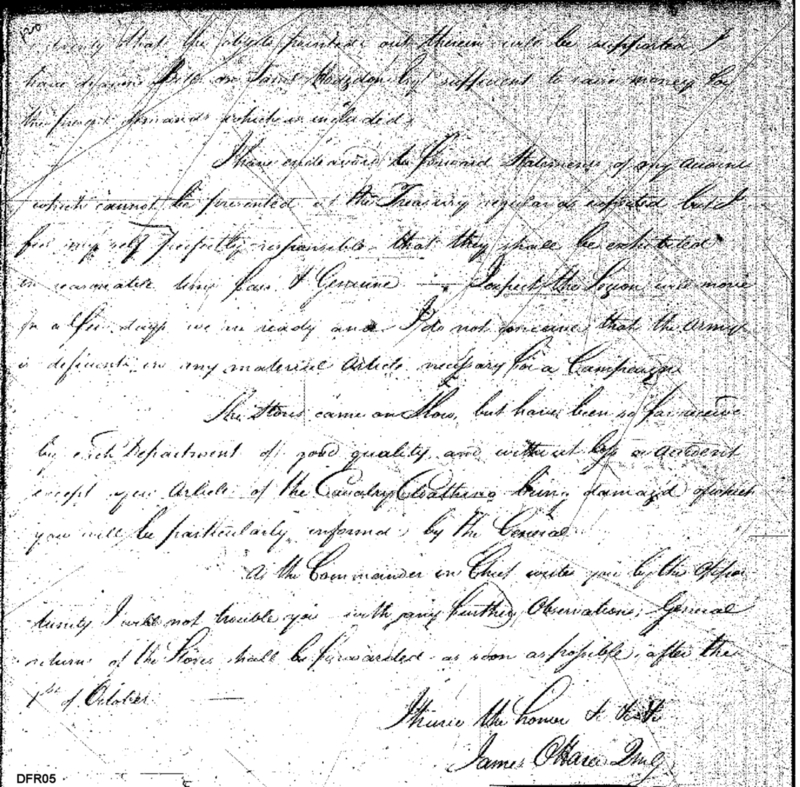 that the objects pointed out therein will be supported I
have drawn Bills on Saml Hodgdon Esqr sufficient to raise money for
the present demands which is included.
I have endeavored to forward Statements of my account
which cannot be presented at the Treasury regular as expected but I
feel my self perfectly responsible that they shall be exhibited
in reasonable time fair & Genuine I expect the Legion will move
in a few days we are ready and I do not conceive that the army
is deficient in any material Article necessary for a Campaign
The Stores came on Slow, but have been so far receive
by each Department of good quality and without loss or accident
except your Article of the Cavalry Cloathing being damaged of which
you will be particularly informed by the General
As the Commander in Chief write you by the Oppor
tunity I will not trouble you with any further Observations, General
return of the Stores shall be forwarded as soon as possible after the
1st of October
I have the honor &
James OHara QMG
DFR05